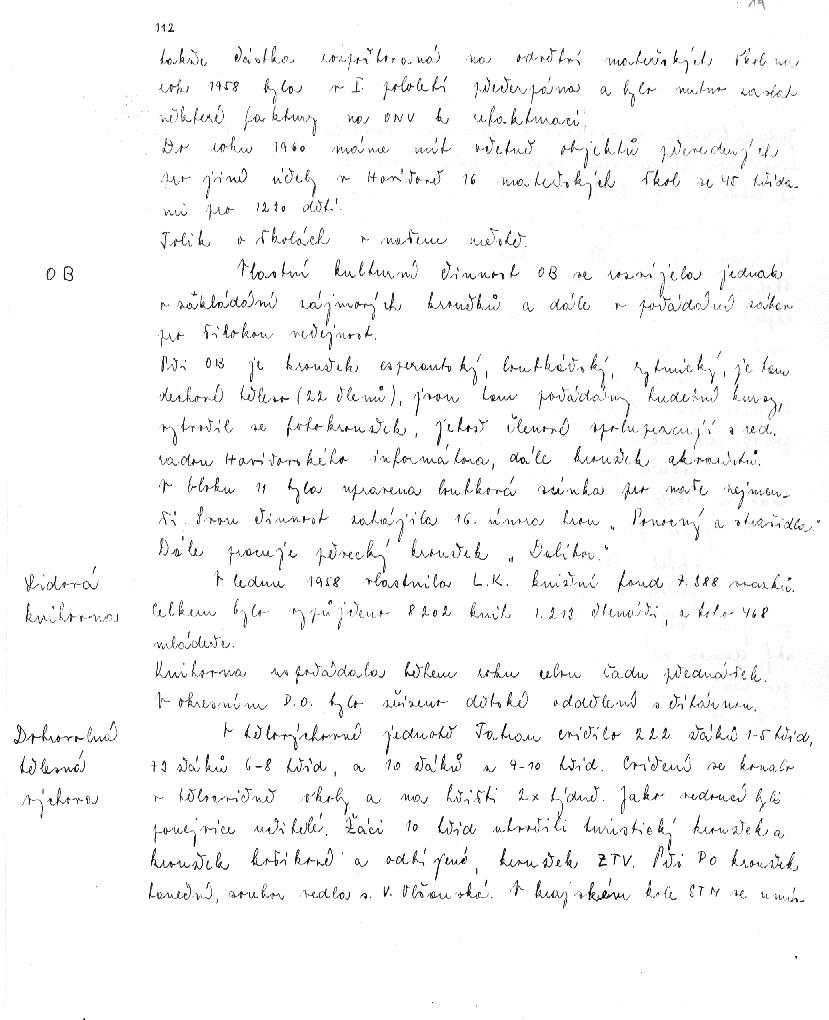 19
112
takže částka rozpočtovaná na odvětví mateřských škol na
rok 1958 byla v I. pololetí přečerpána a bylo nutno zaslat
některé faktury na ONV k refakturaci.
Do roku 1960 máme mít včetně objektů převedených
pro jiné účely v Havířově 16 mateřských škol se 45 třída-
mi pro 1220 dětí.
Tolik o školách v našem městě.
OB
Vlastní kulturní činnost OB se rozvíjela jednak
v zakládání zájmových kroužků a dále v pořádání
pro širokou veřejnost.
Při OB je kroužek esperantský, loutkářský, rytmický, je tam
dechové těleso (22 členů), jsou tam pořádány hudební kursy,
vytvořil se fotokroužek, jehož členové spolupracují s red.
radou Havířovského informátora, dále kroužek akvaristů.
V bloku 11 byla upravena loutková scénka pro naše nejmen-
ší. Svou činnost zahájila 16. února hrou „Ponocný a strašidla."
Dále pracuje pěvecký kroužek „Dalibor."
Lidová
knihovna
V lednu 1958 vlastnila L.K. knižní fond 7.388 svazků.
Celkem bylo vypůjčeno 8202 knih 1.213 čtenáři, z toho 468
mládeže.
Knihovna uspořádala během roku celou řadu přednášek.
V okresním D.O. bylo zřízeno dětské oddělení s čítárnou.
Dobrovolná
tělesná
výchova
V tělovýchovné jednotě Tatran cvičilo 222 žáků 1-5 tříd,
73 žáků 6-8 tříd, a 10 žáků z 9-10 tříd. Cvičení se konalo
v tělocvičně školy a na hřišti 2x týdně. Jako vedoucí byli
ponejvíce učitelé. Žáci 10 tříd utvořili turistický kroužek a
kroužek košíkové a odbíjené, kroužek ZTV. Při PO kroužek
taneční, soubor vedla s. V. Olšanská. V krajském kole STM se umís-